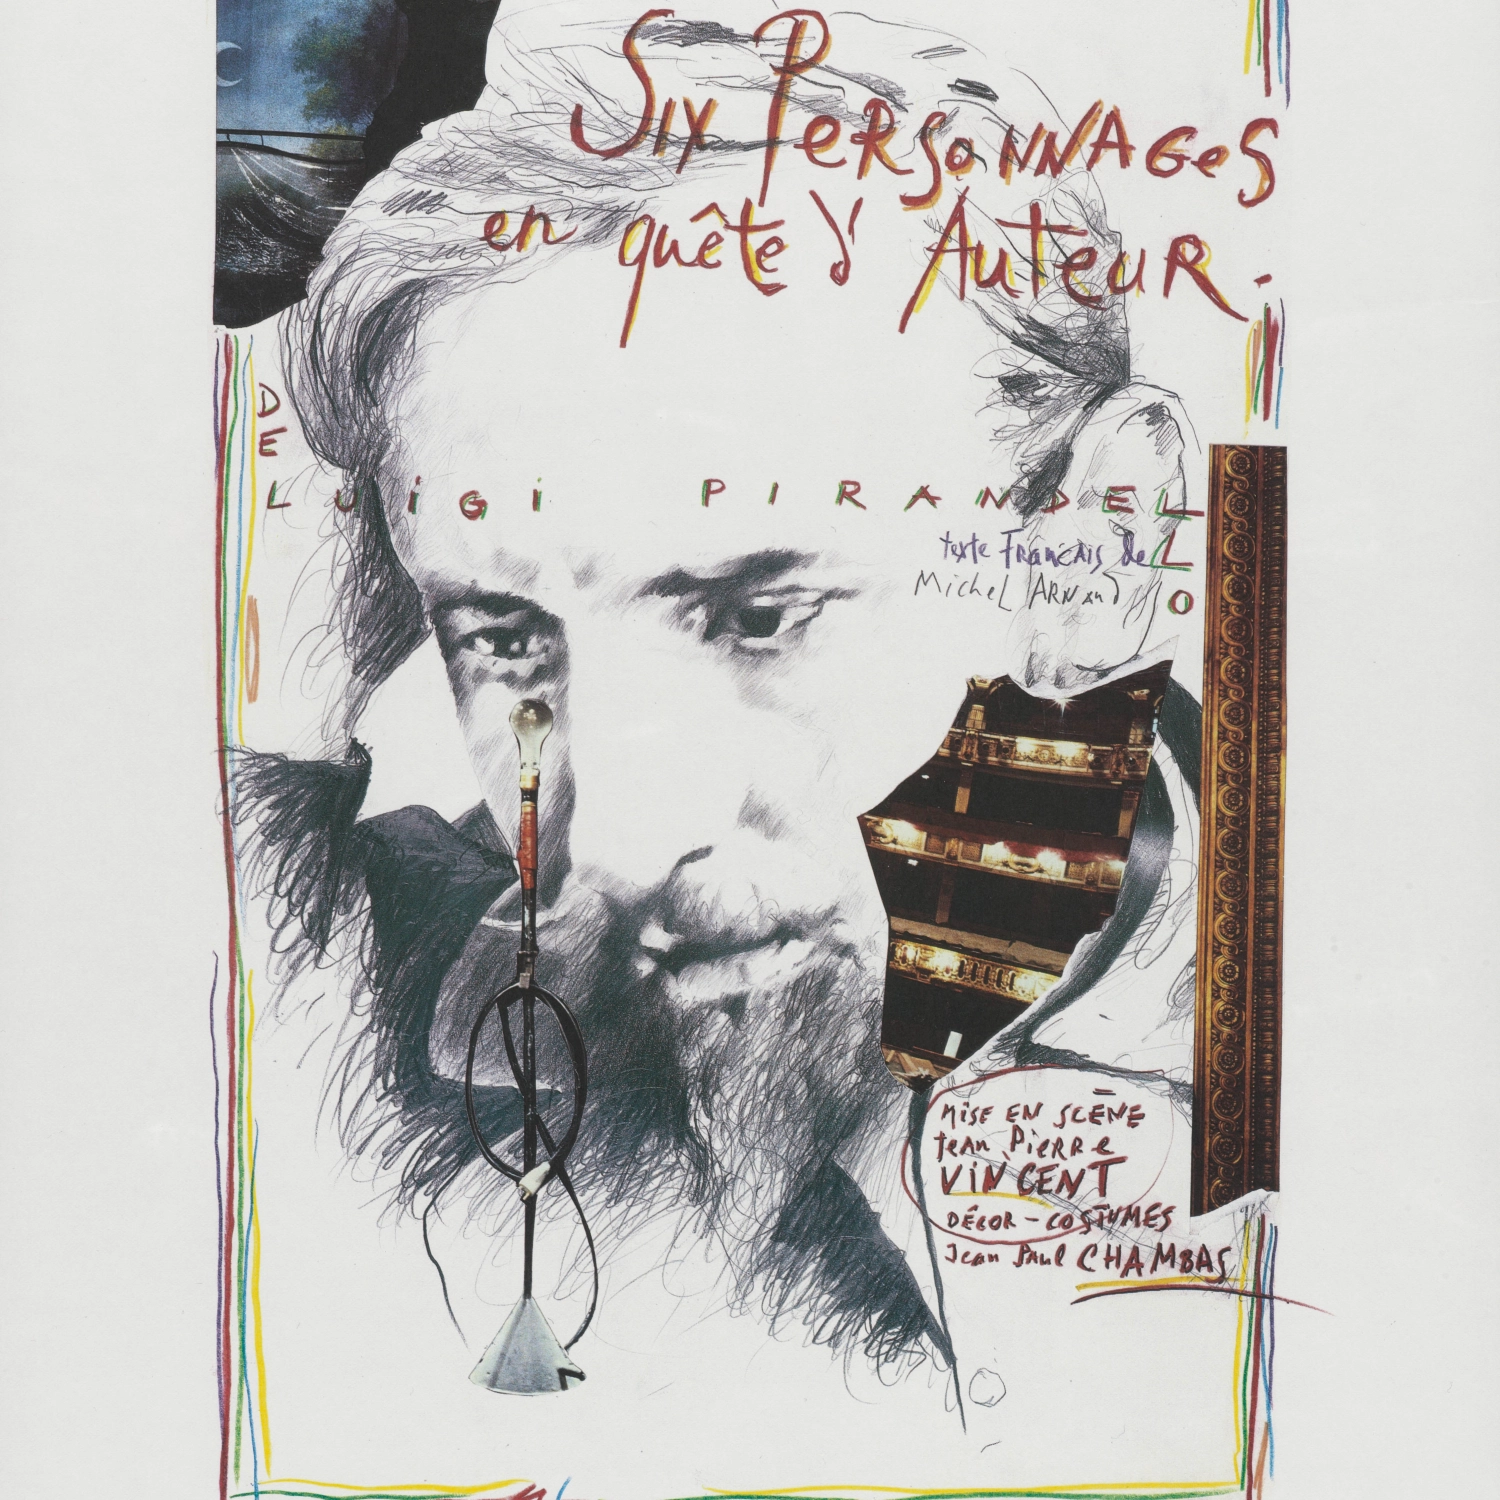 Six Personnages
en quête d'Auteur.
DE
LUIGI PIRANDELLO
texte Français de
Michel ARNAUD
MISE EN SCÈNE
Jean Pierre
VINCENT
DÉCOR - COSTUMES
Jean Paul CHAMBAS